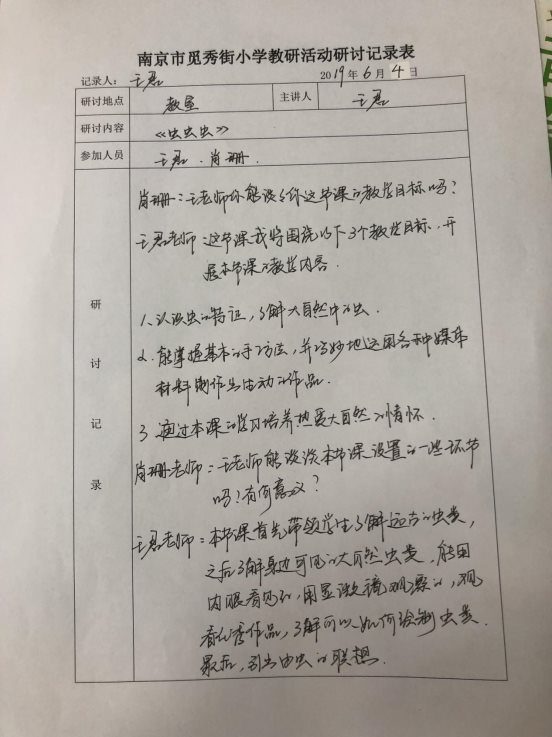 南京市觅秀街小学教研活动研讨记录表
记录人：王君 2019年6月4日
研讨地点 教室 主讲人 王君
研讨内容 《虫虫虫》
参加人员 王君、肖珊.
研讨记录
肖珊：王老师你能谈了你这节课的教学目标吗？
王君老师：这节课我将围绕以下3个教学目标，开
展本节课的教学内容.
1.认识虫的特征，了解大自然中的虫.
2.能掌握基本的手工方法，并巧妙地运用各种媒体
材料制作出生动的作品.
3.通过本课的学习培养热爱大自然的情怀.
肖珊老师：王老师能谈谈本节课设置的一些环节
吗？有何意义？
王君老师：本节课首先带领学生了解远古的虫类，
之后了解身边可见的大自然虫类，能用
肉眼看见的，用显微镜观察的，观
看优秀作品，了解可以如何绘制虫类.
最后，引出由虫的联想.